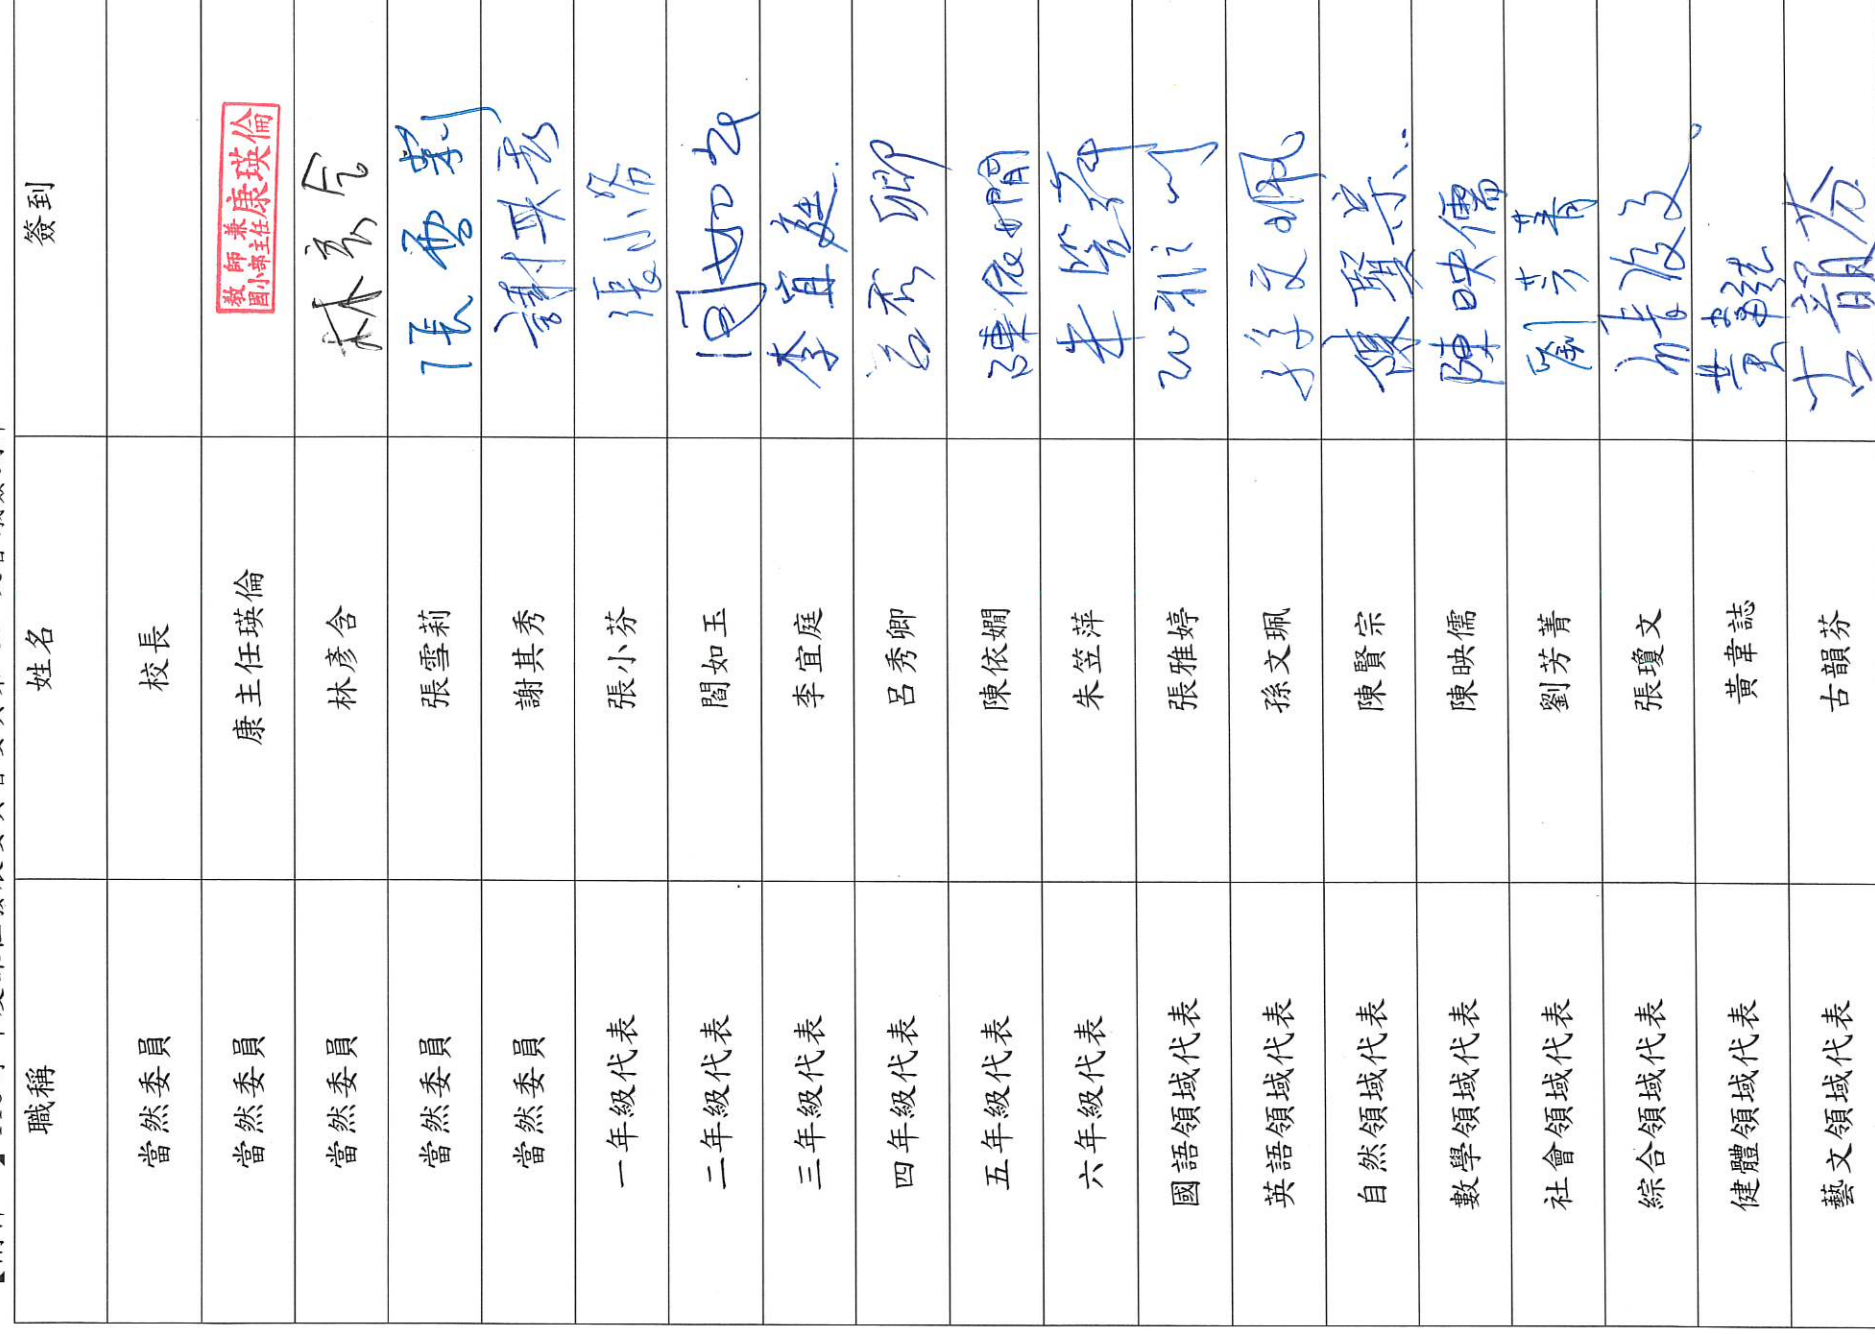 職稱 姓名 簽到
當然委員 校長
當然委員 康主任瑛倫 教師兼國小部主任康瑛倫
當然委員 林彥含 林彥含
當然委員 張雪莉 張雪莉
當然委員 謝其秀 謝其秀
一年級代表 張小芬 張小芬
二年級代表 閻如玉 閻如玉
三年級代表 李宜庭 李宜庭
四年級代表 呂秀卿 呂秀卿
五年級代表 陳依嫺 陳依嫺
六年級代表 朱笠萍 朱笠萍
國語領域代表 張雅婷
英語領域代表 孫文珮 孫文珮
自然領域代表 陳賢宗 陳賢宗
數學領域代表 陳映儒 陳映儒
社會領域代表 劉芳菁 劉芳菁
綜合領域代表 張瓊文
健體領域代表 黃韋誌
藝文領域代表 古韻芬 古韻芬